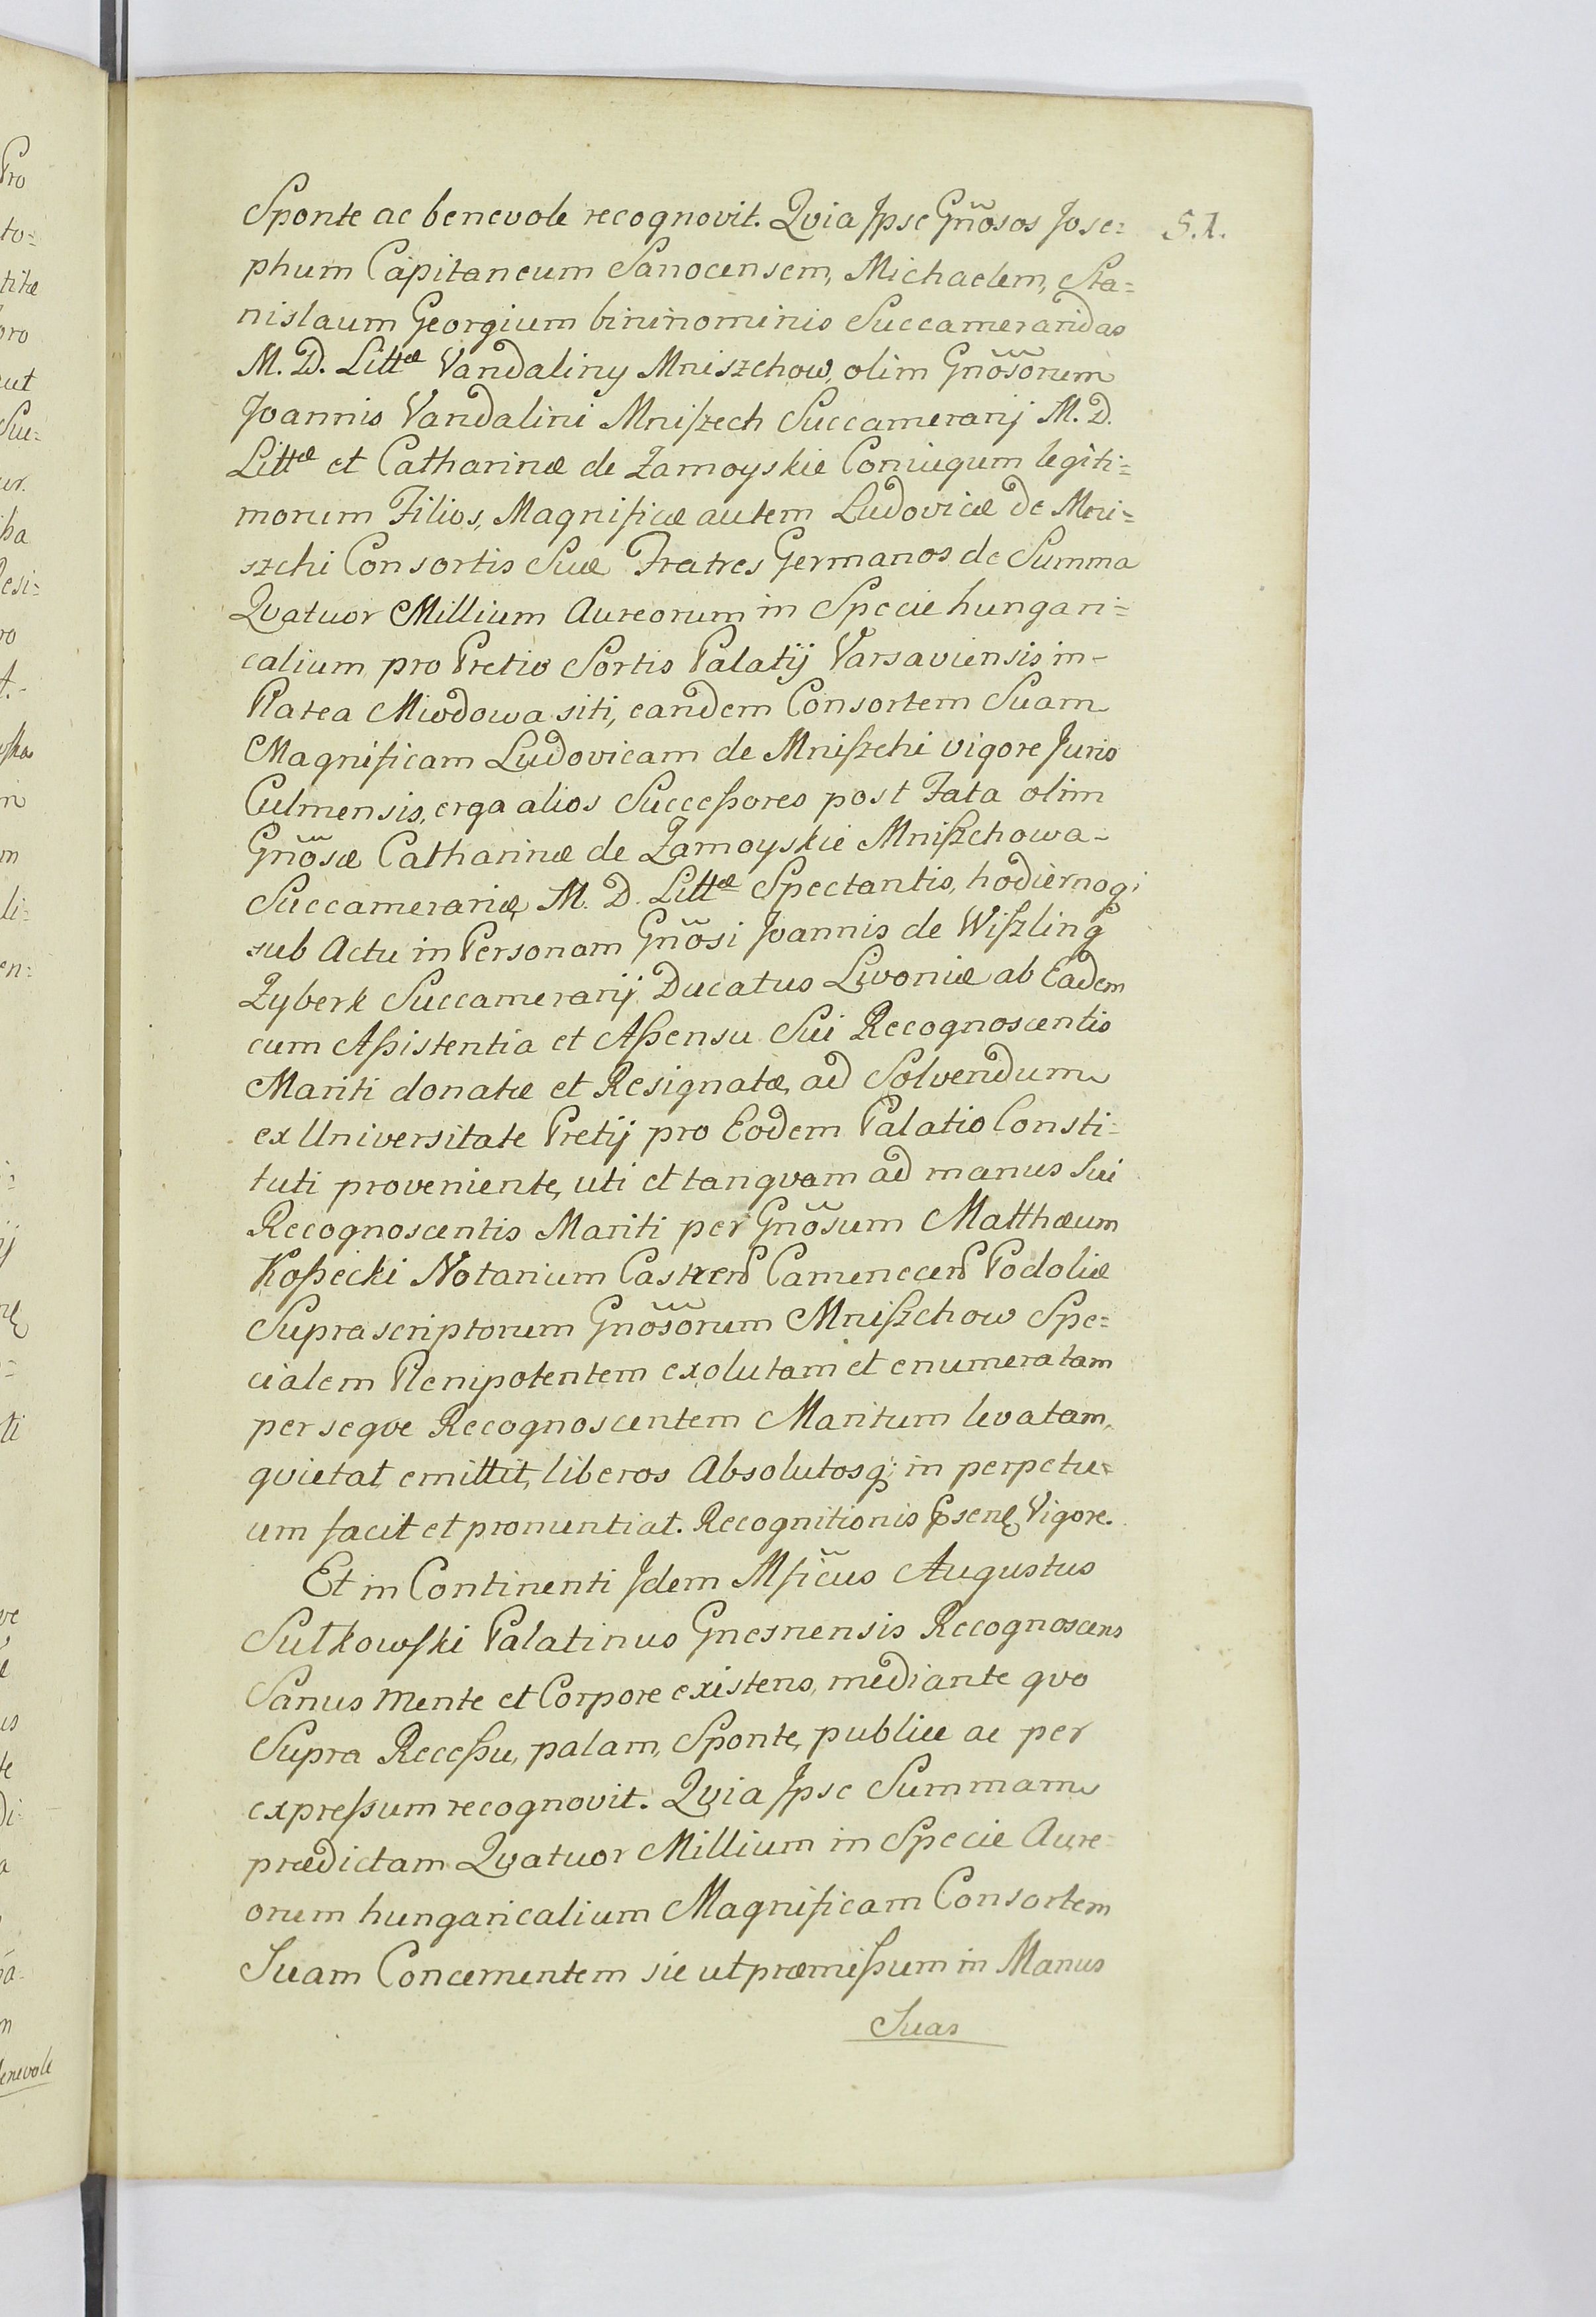 Sponte ac benevole recognovit. Qvia Ipse Gñosos Jose=
51.
phum Capitaneum Sanocensem, Michaelem, Sta=
nislaum Georgium bininominis Succameraridas
M. D. Littæ Vandaliny Mniszchow, olim Gñosorum
Joannis Vandalini Mniszech Succamerarij M. D.
Littæ et Catharinæ de Zamoyskie Coniugum legiti=
morum Filios, Magnificæ autem Ludovicæ de Mni=
szchi Consortis Suæ Fratres Germanos de Summa
Qvatuor Millium Aureorum in Specie hungari=
calium pro Pretio Sortis Palatij Varsaviensis in-
Platea Miodowa siti, eandem Consortem Suam
Magnificam Ludovicam de Mniszchi vigore Juris
Culmensis, erga alios Successores post Fata olim
Gñosæ Catharinæ de Zamoyskie Mniszchowa-
Succamerariæ M. D. Littæ Spectantis, hodiernoq;
sub Actu in Personam Gñosi Joannis de Wiszling
Zyberk Succamerarij Ducatus Livoniæ ab Eadem
cum Assistentia et Assensu Sui Recognoscentis
Mariti donatæ et Resignatæ, ad Solvendum
ex Universitate Pretij pro Eodem Palatio Consti=
tuti proveniente, uti et tanqvam ad manus Sui
Recognoscentis Mariti per Gñosum Matthæum
Kossecki Notarium Castren Camenecen Podoliæ
Supra scriptorum Gñosorum Mniszchow Spe=
cialem Plenipotentem exolutam et enumeratam
per seqve Recognoscentem Maritum levatam,
qvietat, emittit, liberos Absolutosq; in perpetu=
um facit et pronuntiat. Recognitionis Psenę Vigore.
Et in Continenti Idem Mficus Augustus
Sułkowski Palatinus Gnesnensis Recognoscens
Sanus mente et Corpore existens, mediante qvo
Supra Recessu, palam, Sponte, publice ac per
expressum recognovit. Qvia Ipse Summam
prædictam Qvatuor Millium in Specie Aure=
orum hungaricalium Magnificam Consortem
Suam Concernentem sic ut præmissum in Manus
Suas